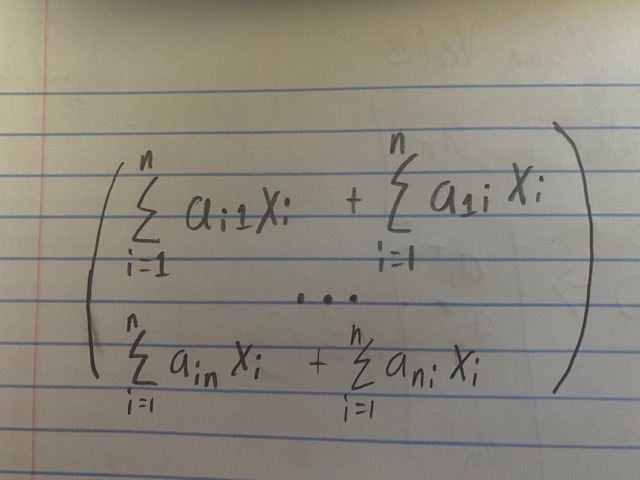 ( ∑_{i=1}^{n} a_{i1} x_i + ∑_{i=1}^{n} a_{1i} x_i
...
∑_{i=1}^{n} a_{in} x_i + ∑_{i=1}^{n} a_{ni} x_i )